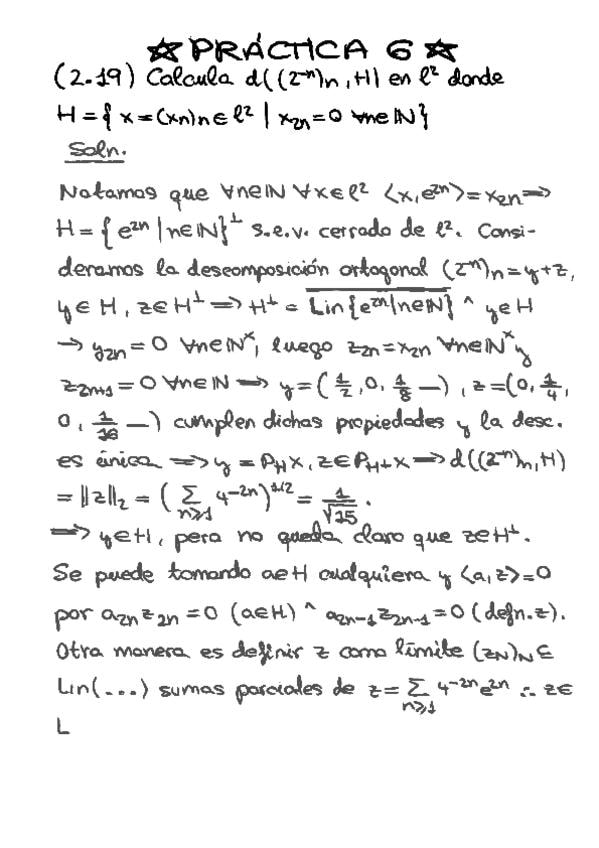 ☆ PRÁCTICA 6 ☆
(2.19) Calcula d((2⁻ⁿ)n, H) en ℓ² donde
H = { x = (xn)n ∈ ℓ² | x₂n = 0 ∀n∈ℕ}
Soln.
Notamos que ∀n∈ℕ ∀x∈ℓ² ⟨x, e²ⁿ⟩ = x₂n ⟹
H = { e²ⁿ | n∈ℕ}^⊥ s.e.v. cerrado de ℓ². Consi-
deramos la descomposición ortogonal (2⁻ⁿ)n = y+z,
y∈H, z∈H^⊥ ⟹ H^⊥ = \overline{Lin{e²ⁿ|n∈ℕ}} ^ y∈H
→ y₂n = 0 ∀n∈ℕˣ, luego z₂n = x₂n ∀n∈ℕˣ y
z₂n+1 = 0 ∀n∈ℕ ⟹ y = (1/2, 0, 1/8 —), z = (0, 1/4,
0, 1/16 —) cumplen dichas propiedades y la desc.
es única ⟹ y = P_H x, z ∈ P_H⊥ x ⟹ d((2⁻ⁿ)n, H)
= ‖z‖₂ = ( Σ_{n≥1} 4⁻²ⁿ )^{1/2} = 1/√15.
⟹ y∈H, pero no queda claro que z∈H^⊥.
Se puede tomando a∈H cualquiera y ⟨a, z⟩ = 0
por a₂n z₂n = 0 (a∈H) ^ a₂n-1 z₂n-1 = 0 (defn. z).
Otra manera es definir z como límite (z_N)_N ⊆
Lin(...) sumas parciales de z = Σ_{n≥1} 4⁻²ⁿ e²ⁿ ∴ z∈
L